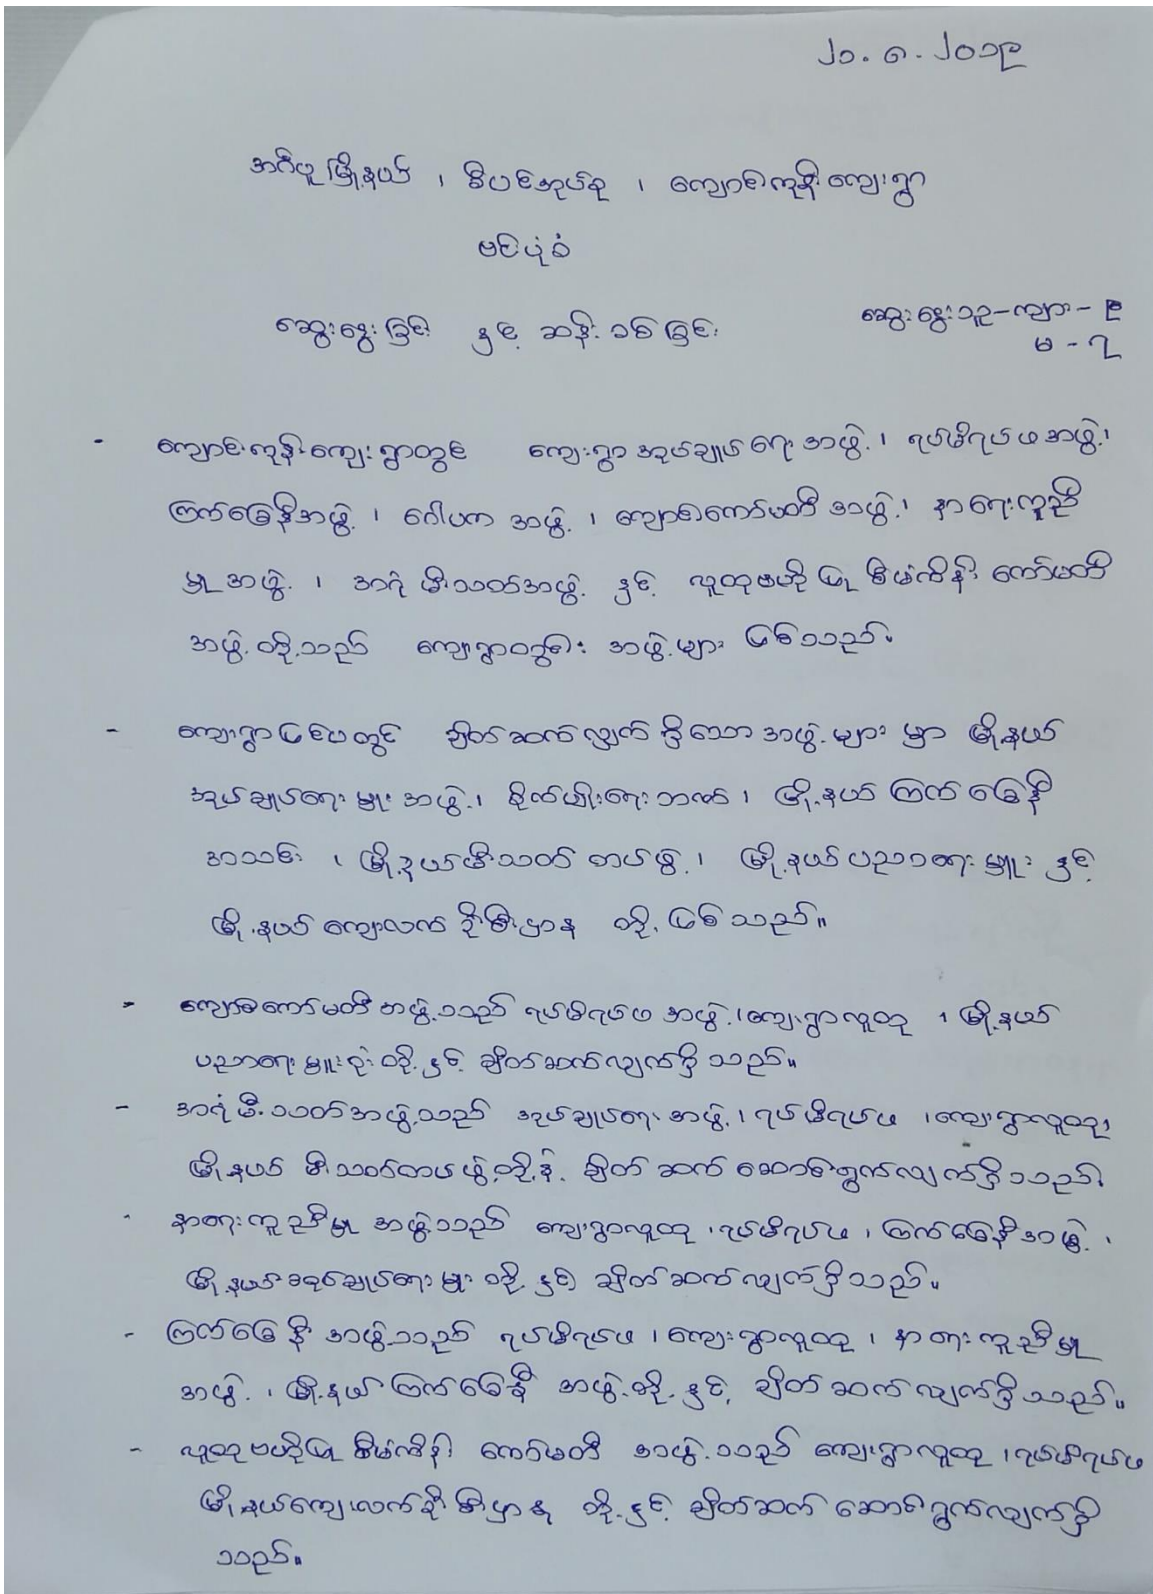 ၂၁.၈.၂၀၁၉
အင်္ဂပူမြို့နယ်၊ စီပင်အုပ်စု၊ ကျောင်းကုန်းကျေးရွာ
ဗင်းပုံစံ
ဆွေးနွေးခြင်း နှင့် ဆန်းစစ်ခြင်း
ဆွေးနွေးသူ-ကျား-၉
မ-၇
- ကျောင်းကုန်းကျေးရွာတွင် ကျေးရွာအုပ်ချုပ်ရေးအဖွဲ့၊ ရပ်မိရပ်ဖအဖွဲ့၊
ကြက်ခြေနီအဖွဲ့၊ ဂေါပကအဖွဲ့၊ ကျောင်းကော်မတီအဖွဲ့၊ နာရေးကူညီ
မှုအဖွဲ့၊ အရံမီးသတ်အဖွဲ့ နှင့် လူထုဗဟိုပြုစီမံကိန်းကော်မတီ
အဖွဲ့တို့သည် ကျေးရွာတွင်း အဖွဲ့များ ဖြစ်သည်။
- ကျေးရွာပြင်ပတွင် ချိတ်ဆက်လျှက်ရှိသောအဖွဲ့များမှာ မြို့နယ်
အုပ်ချုပ်ရေးမှူးအဖွဲ့၊ စိုက်ပျိုးရေးဘဏ်၊ မြို့နယ်ကြက်ခြေနီ
အသင်း၊ မြို့နယ်မီးသတ်တပ်ဖွဲ့၊ မြို့နယ်ပညာရေးမှူး နှင့်
မြို့နယ်ကျေးလက်ဦးစီးဌာန တို့ ဖြစ်သည်။
- ကျောင်းကော်မတီအဖွဲ့သည် ရပ်မိရပ်ဖအဖွဲ့၊ကျေးရွာလူထု၊ မြို့နယ်
ပညာရေးမှူးရုံးတို့နှင့် ချိတ်ဆက်လျက်ရှိသည်။
- အရံမီးသတ်အဖွဲ့သည် အုပ်ချုပ်ရေးအဖွဲ့၊ရပ်မိရပ်ဖ၊ကျေးရွာလူထု၊
မြို့နယ် မီးသတ်တပ်ဖွဲ့တို့နှင့် ချိတ်ဆက်ဆောင်ရွက်လျက်ရှိသည်။
- နာရေးကူညီမှုအဖွဲ့သည် ကျေးရွာလူထု၊ရပ်မိရပ်ဖ၊ကြက်ခြေနီအဖွဲ့၊
မြို့နယ်အုပ်ချုပ်ရေးမှူးတို့နှင့် ချိတ်ဆက်လျက်ရှိသည်။
- ကြက်ခြေနီအဖွဲ့သည် ရပ်မိရပ်ဖ၊ကျေးရွာလူထု၊ နာရေးကူညီမှု
အဖွဲ့၊ မြို့နယ်ကြက်ခြေနီအဖွဲ့တို့နှင့် ချိတ်ဆက်လျက်ရှိသည်။
- လူထုဗဟိုပြုစီမံကိန်း ကော်မတီအဖွဲ့သည် ကျေးရွာလူထု၊ရပ်မိရပ်ဖ
မြို့နယ်ကျေးလက်ဦးစီးဌာန တို့နှင့် ချိတ်ဆက်ဆောင်ရွက်လျက်ရှိ
သည်။